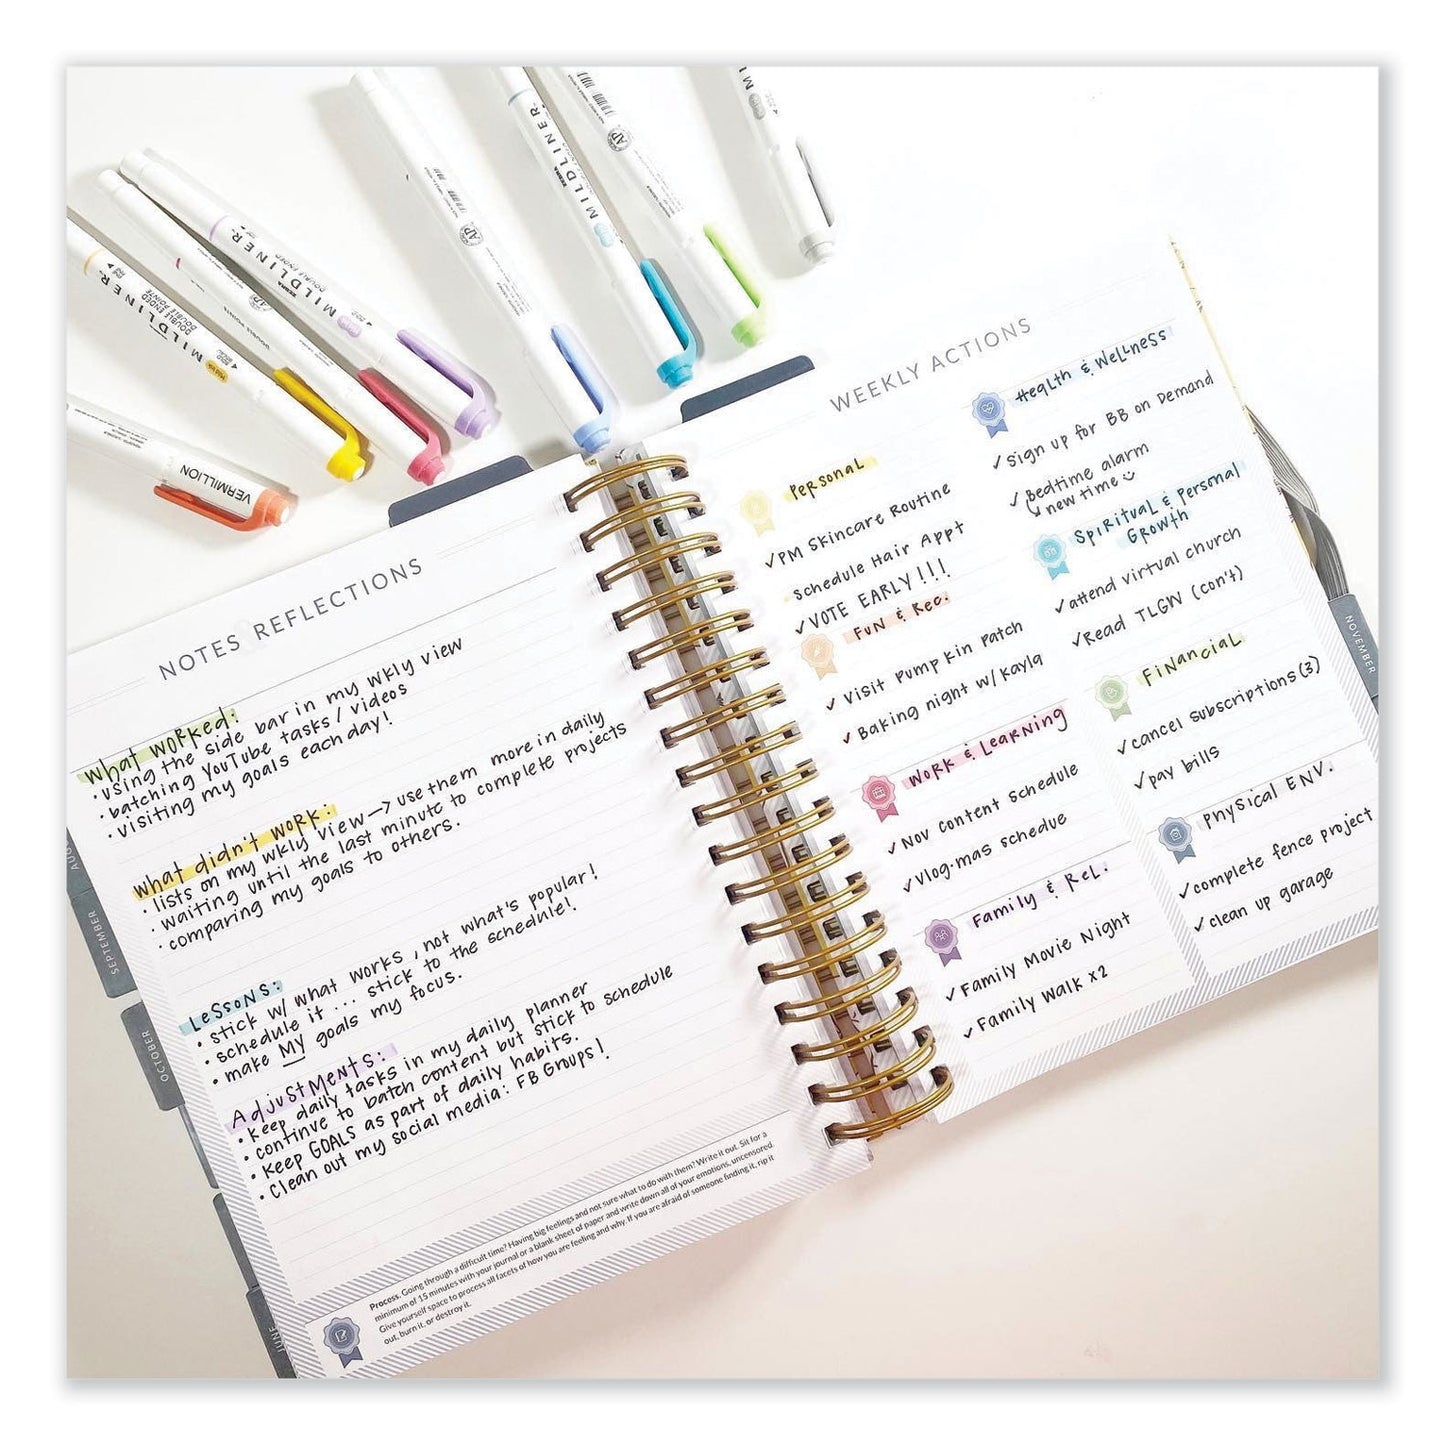 MILDLINER
DOUBLE ENDED
DOUBLE POINTE
MILDLINER
ZEBRA
DOUBLE ENDED
VERMILLION
MILDLINER
ZEBRA
AP
AP
NOTES & REFLECTIONS
What worked:
• using the side bar in my wkly view
• batching YouTube tasks / videos
• visiting my goals each day!
What didn't work:
• lists on my wkly view → use them more in daily
• waiting until the last minute to complete projects
• comparing my goals to others.
Lessons:
• stick w/ what works, not what's popular!
• schedule it ... stick to the schedule!
• make MY goals my focus.
Adjustments:
• Keep daily tasks in my daily planner
• continue to batch content but stick to schedule
• Keep GOALS as part of daily habits.
• Clean out my social media: FB Groups!
Process. Going through a difficult time? Having big feelings and not sure what to do with them? Write it out. Sit for a
minimum of 15 minutes with your journal or a blank sheet of paper and write down all of your emotions, uncensored.
Give yourself space to process all facets of how you are feeling and why. If you are afraid of someone finding it, rip it
out, burn it, or destroy it.
SEPTEMBER
OCTOBER
JUNE
WEEKLY ACTIONS
Personal
✓ PM Skincare Routine
• Schedule Hair Appt
✓ VOTE EARLY!!!
Fun & Rec.
✓ Visit Pumpkin Patch
✓ Baking night w/ Kayla
Work & Learning
✓ Nov content schedule
✓ Vlog-mas schedue
Family & Rel.
✓ Family Movie Night
✓ Family Walk x2
Health & Wellness
✓ Sign up for BB on Demand
✓ Bedtime alarm
↳ new time
Spiritual & Personal
Growth
✓ attend virtual church
✓ Read TLGW (con't)
Financial
✓ cancel subscriptions (3)
✓ pay bills
Physical ENV.
✓ complete fence project
✓ clean up garage
NOVEMBER